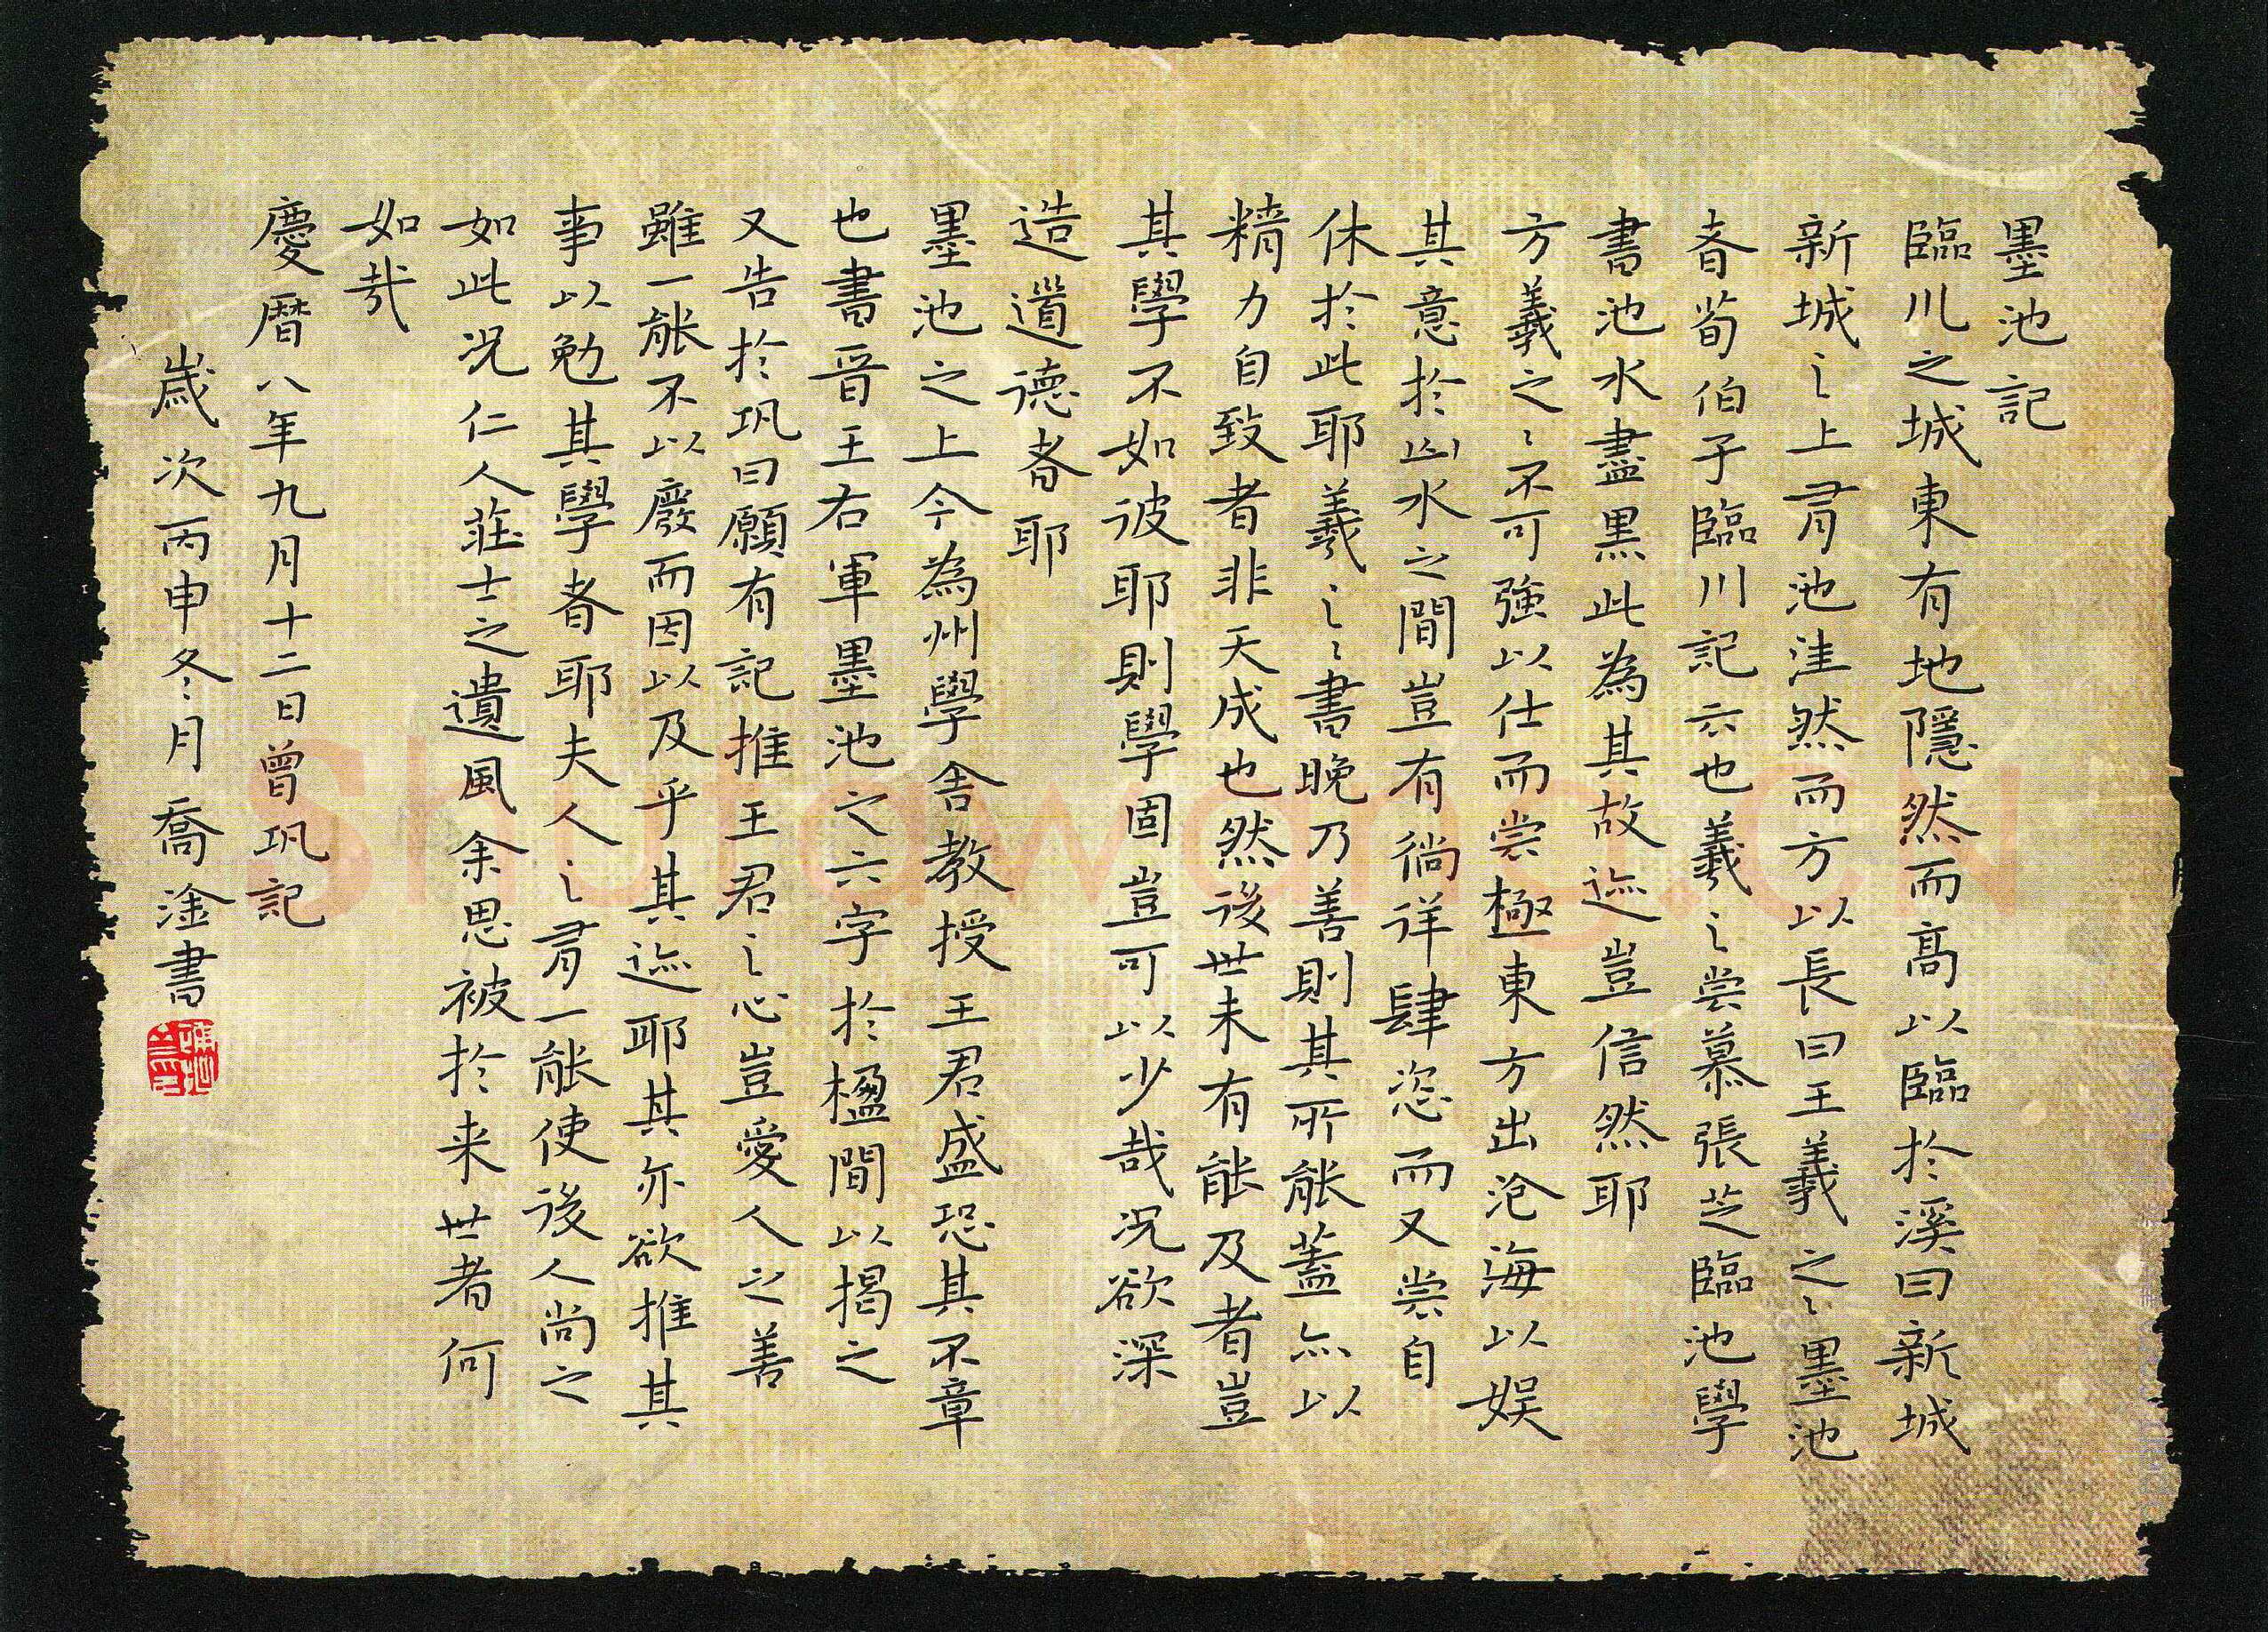 墨池記
臨川之城東有地隱然而高以臨於溪曰新城
新城之上有池洼然而方以長曰王羲之之墨池
者荀伯子臨川記云也羲之嘗慕張芝臨池學
書池水盡黑此為其故迹豈信然耶
方羲之之不可強以仕而嘗極東方出滄海以娛
其意於山水之間豈有徜徉肆恣而又嘗自
休於此耶羲之之書晚乃善則其所能蓋亦以
精力自致者非天成也然後世未有能及者豈
其學不如彼耶則學固豈可以少哉况欲深
造道德者耶
墨池之上今為州學舍教授王君盛恐其不章
也書晉王右軍墨池之六字於楹間以揭之
又告於巩曰願有記推王君之心豈愛人之善
雖一能不以廢而因以及乎其迹耶其亦欲推其
事以勉其學者耶夫人之有一能使後人尚之
如此况仁人莊士之遺風余思被於来世者何
如哉
慶曆八年九月十二日曾巩記
歲次丙申冬月喬淦書
Shufawang.CN